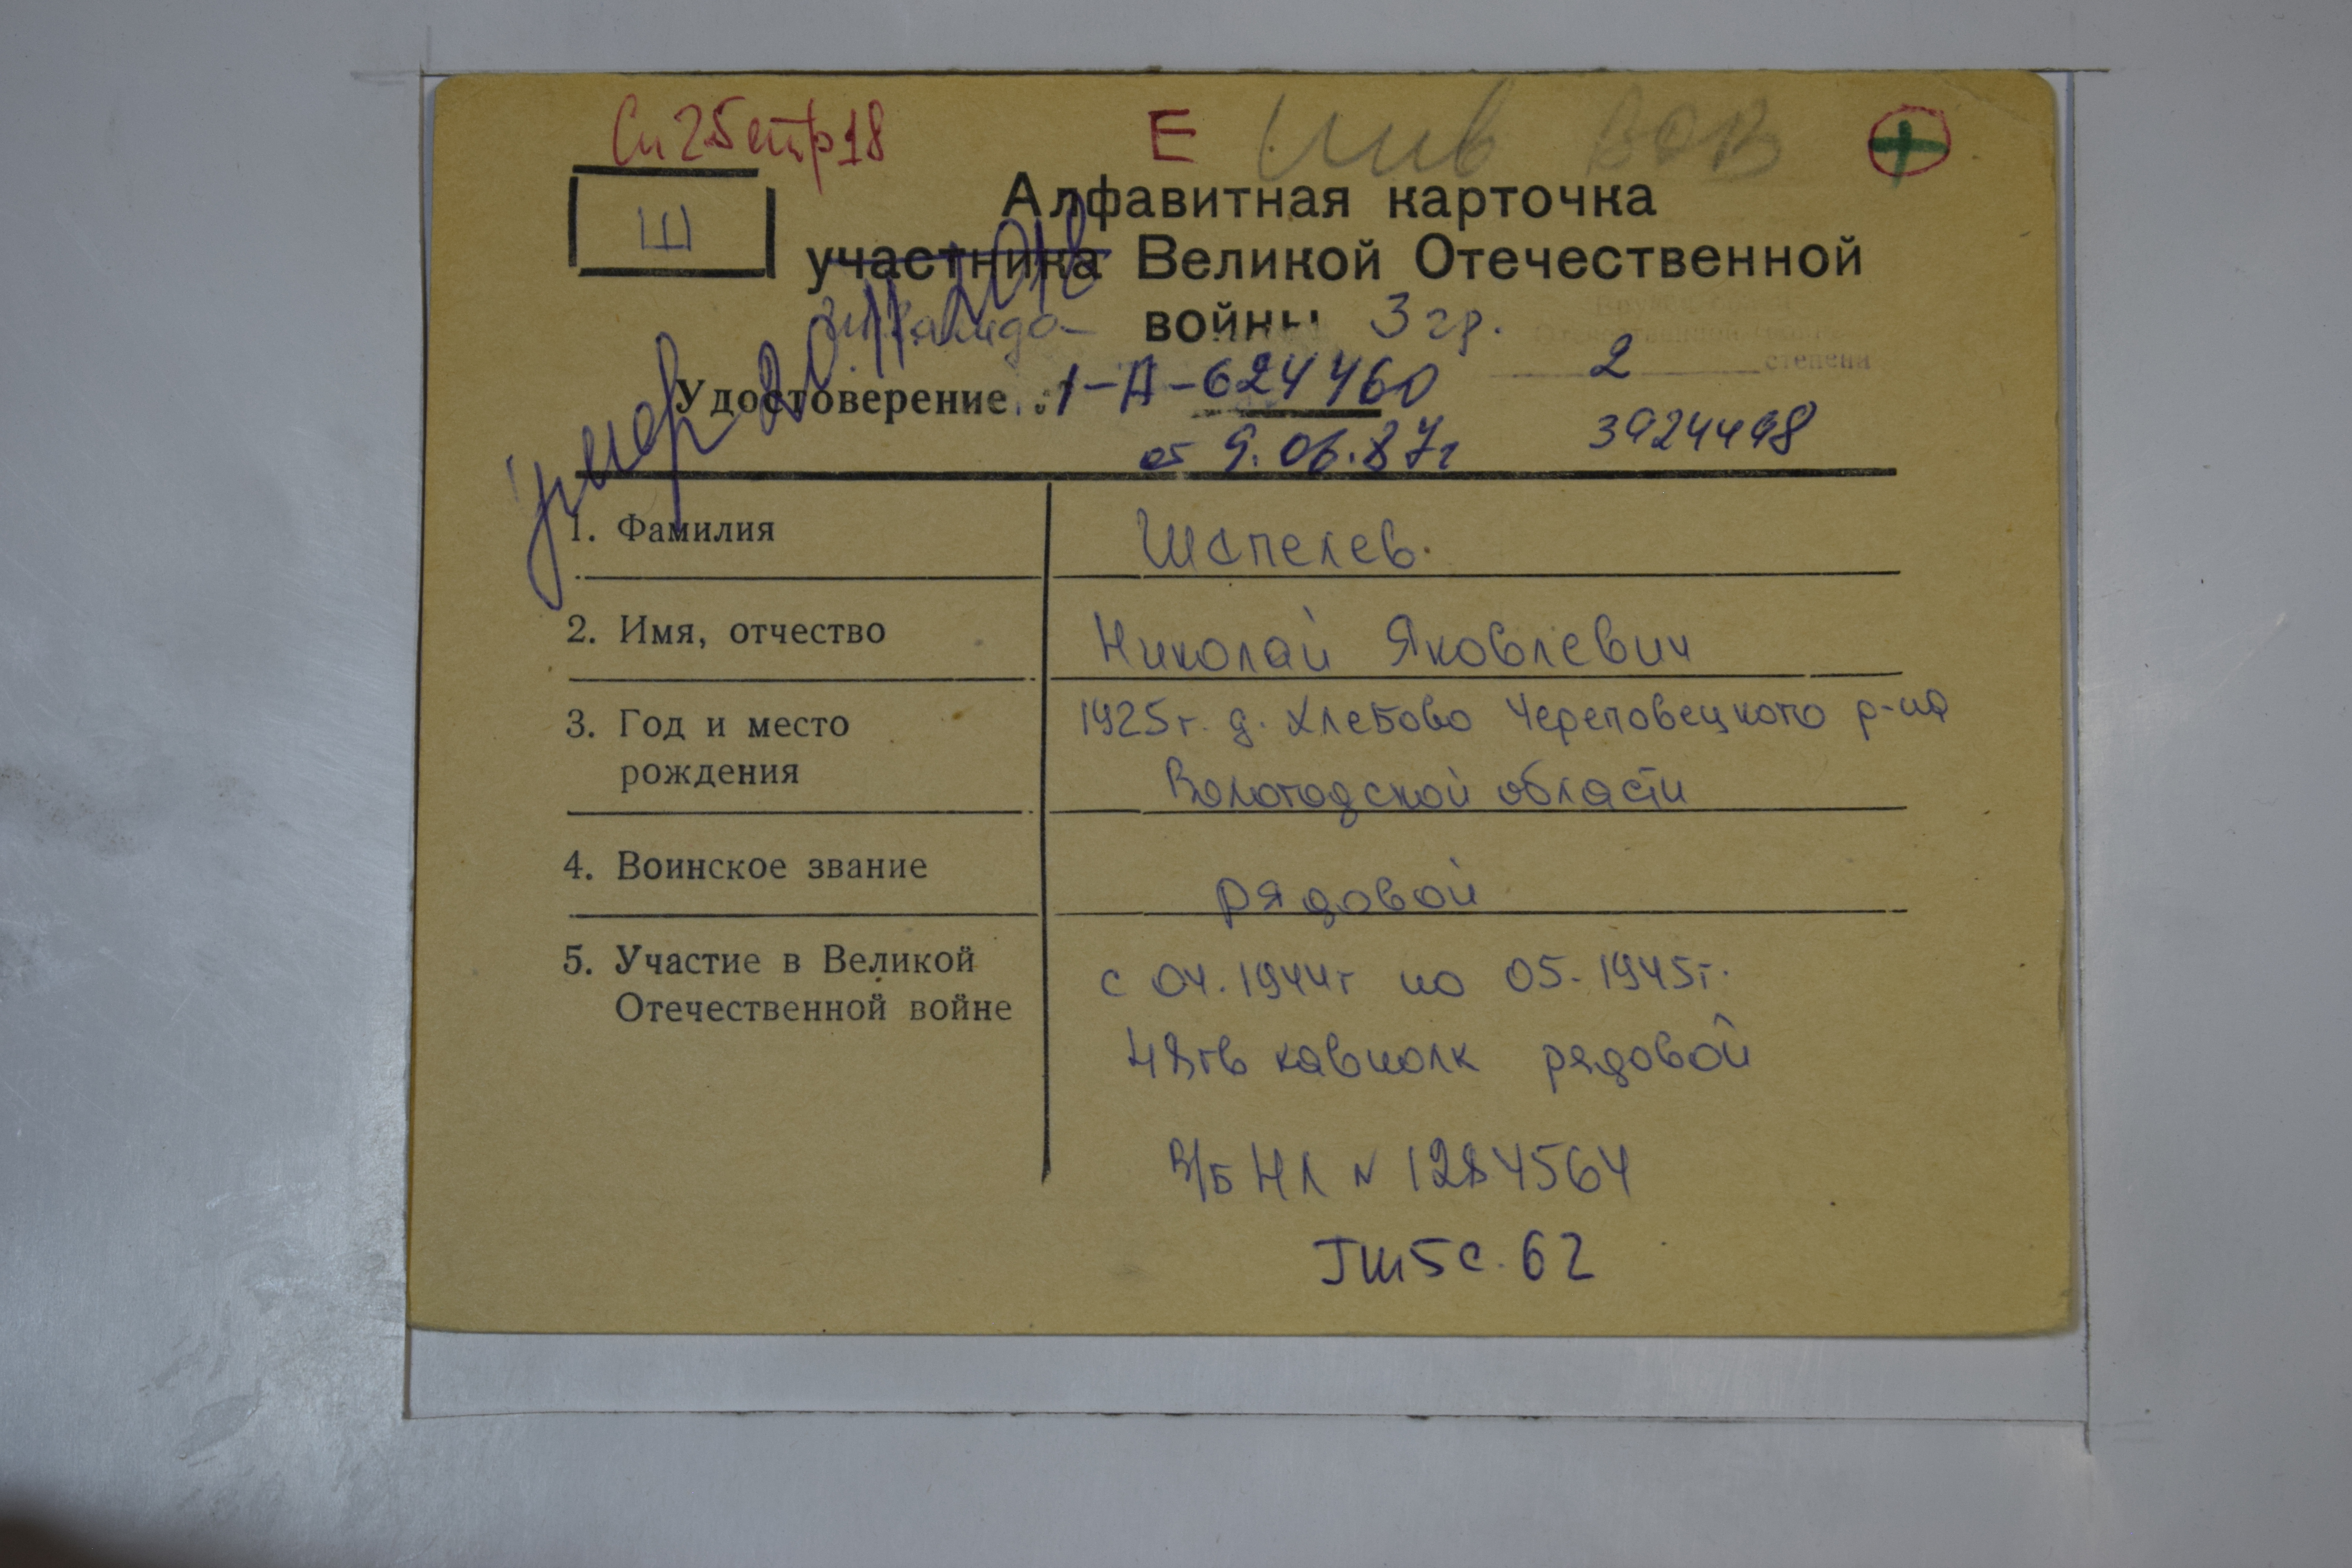 Сп 25 стр 18 Е Инв ВОВ +
Алфавитная карточка
Ш
участника Великой Отечественной
инвалида войны 3 гр.
умер 20.11.2018
2 степени
Удостоверение 1-А-624460
от 9.06.87г 3924498
1. Фамилия Шапелев.
2. Имя, отчество Николай Яковлевич
3. Год и место 1925г. д. Хлебово Череповецкого р-на
рождения Вологодской области
4. Воинское звание рядовой
5. Участие в Великой с 04.1944г по 05.1945г.
Отечественной войне
48 гв кавполк рядовой
В/Б НЛ № 1284564
ГШ5 с. 62